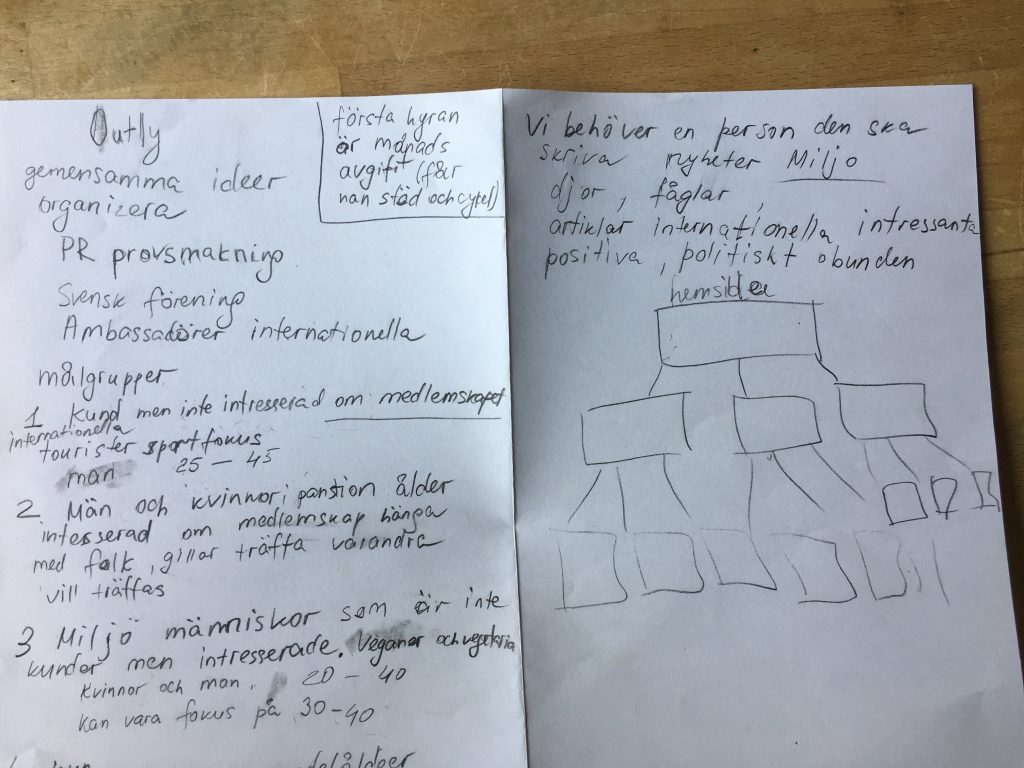 Outly
gemensamma ideer
organizera
PR provsmakning
Svensk förening
Ambassadörer internationella
första hyran
är månads
avgift (får
man städ och cykel)
målgrupper
1 Kund men inte intresserad om medlemskapet
internationella
tourister sportfokus
man 25 - 45
2 Män och kvinnor i panstion ålder
intesserad om medlemskap hänga
med folk, gillar träffa varandra
vill träffas
3 Miljö människor som är inte
kunder men intresserade. Veganer och
Kvinnor och man. 20 - 40
kan vara fokus på 30-40
Vi behöver en person den ska
skriva nyheter Miljo
djor, fåglar,
artiklar internationella intressanta
positiva, politiskt obunden
hemsidea